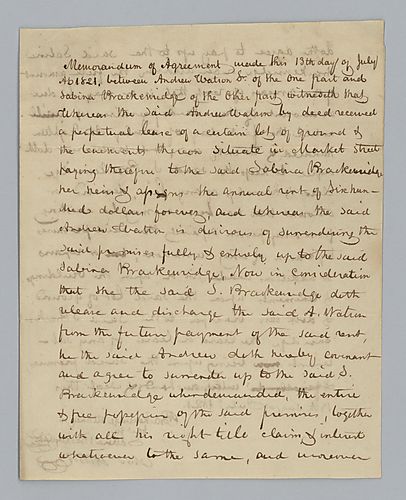 Memorandum of Agreement made this 13th day of July
AD 1821, between Andrew Watson of the one part and
Sabina Brackenridge of the other part, witnesseth that
Whereas the said Andrew Watson by deed received
a perpetual lease of a certain lot of ground &
the tenements thereon situate in Market Street
paying therefor to the said Sabina Brackenridge
her heirs & assigns the annual rent of Six hun-
dred dollars forever, and whereas the said
Andrew Watson is desirous of surrendering the
said premises fully & entirely up to the said
Sabina Brackenridge, Now in Consideration
that she the said S. Brackenridge doth
release and discharge the said A. Watson
from the future payment of the said rent,
he the said Andrew doth hereby covenant
and agree to surrender up to the said S.
Brackenridge when demanded, the entire
& free possession of the said premises, together
with all his right title claim & interest
whatsoever to the same, and moreover